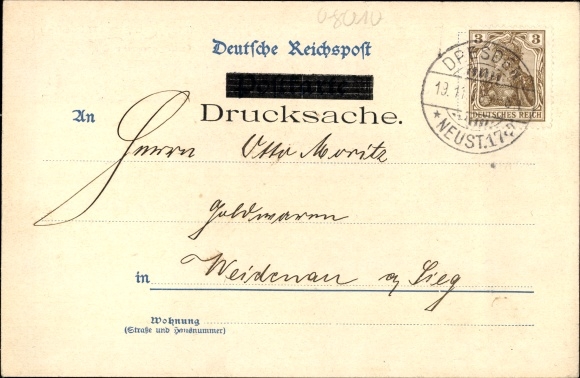 Deutsche Reichspost
Drucksache.
An
Herrn Otto Moritz
Goldwaren
in Weidenau a/Sieg
Wohnung
(Straße und Hausnummer)
3 3
DEUTSCHES REICH
DRESDEN
19.11
* NEUST.